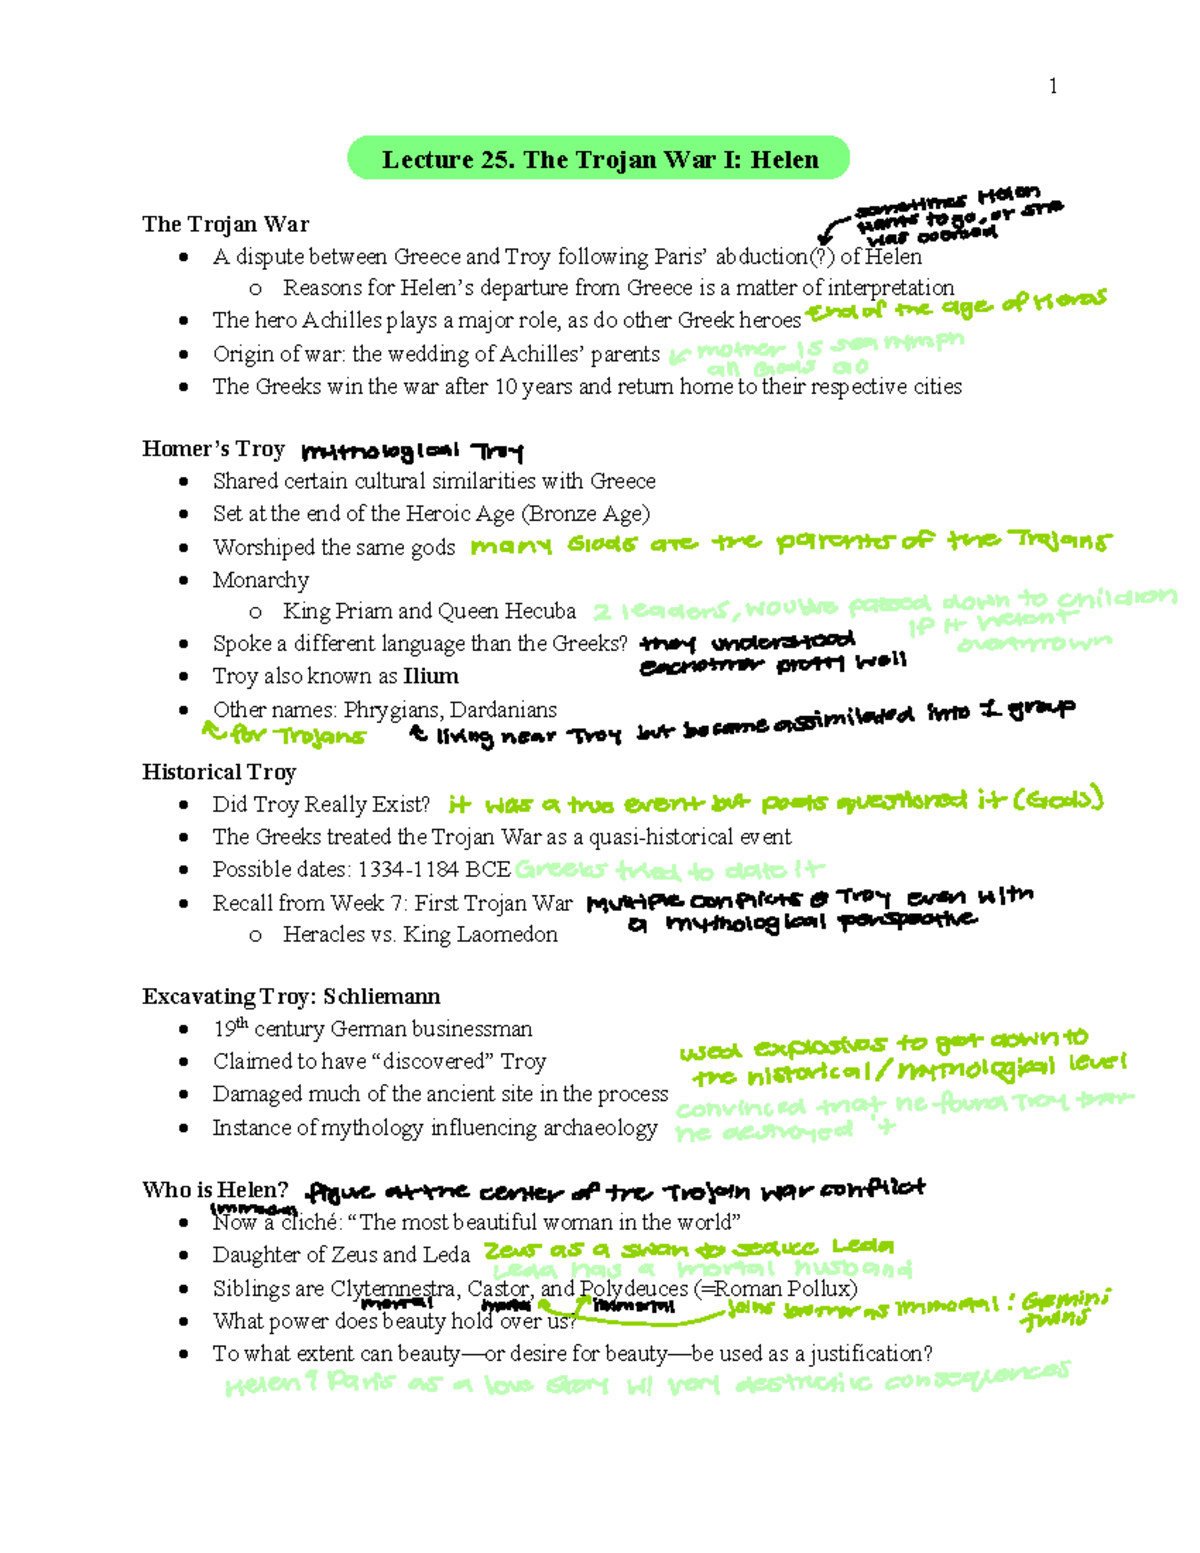 1
Lecture 25. The Trojan War I: Helen
sometimes Helen
wants to go, or she
was coerced
The Trojan War
• A dispute between Greece and Troy following Paris’ abduction(?) of Helen
o Reasons for Helen’s departure from Greece is a matter of interpretation
• The hero Achilles plays a major role, as do other Greek heroes End of the age of Heros
• Origin of war: the wedding of Achilles’ parents mother is sea nymph
all Gods go
• The Greeks win the war after 10 years and return home to their respective cities
Homer’s Troy mythological Troy
• Shared certain cultural similarities with Greece
• Set at the end of the Heroic Age (Bronze Age)
• Worshiped the same gods many Gods are the parents of the Trojans
• Monarchy
o King Priam and Queen Hecuba 2 leaders, would passed down to children
if it weren't
overthrown
• Spoke a different language than the Greeks? they understood
eachother pretty well
• Troy also known as Ilium
• Other names: Phrygians, Dardanians
for Trojans living near Troy but became assimilated into 1 group
Historical Troy
• Did Troy Really Exist? it was a true event but poets questioned it (Gods)
• The Greeks treated the Trojan War as a quasi-historical event
• Possible dates: 1334-1184 BCE Greeks tried to date it
• Recall from Week 7: First Trojan War multiple conflicts @ Troy even with
a mythological perspective
o Heracles vs. King Laomedon
Excavating Troy: Schliemann
• 19th century German businessman
• Claimed to have “discovered” Troy used explosives to get down to
the historical/mythological level
• Damaged much of the ancient site in the process convinced that he found Troy, then
• Instance of mythology influencing archaeology he destroyed it
Who is Helen? figure at the center of the Trojan war conflict
immortal
• Now a cliché: “The most beautiful woman in the world”
• Daughter of Zeus and Leda Zeus as a swan to seduce Leda
Leda has a mortal husband
• Siblings are Clytemnestra, Castor, and Polydeuces (=Roman Pollux)
mortal mortal immortal joins brother as immortal: Gemini
twins
• What power does beauty hold over us?
• To what extent can beauty—or desire for beauty—be used as a justification?
Helen? Paris as a love story w/ very destructive consequences